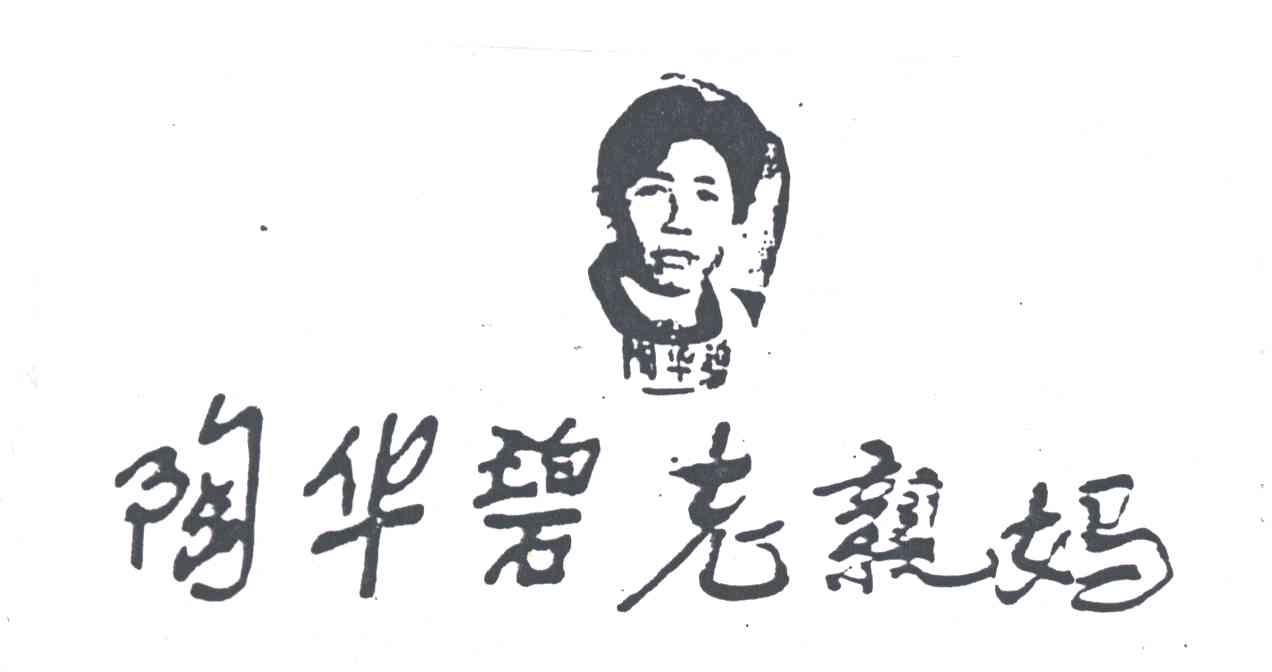 陶华碧
陶华碧老親妈